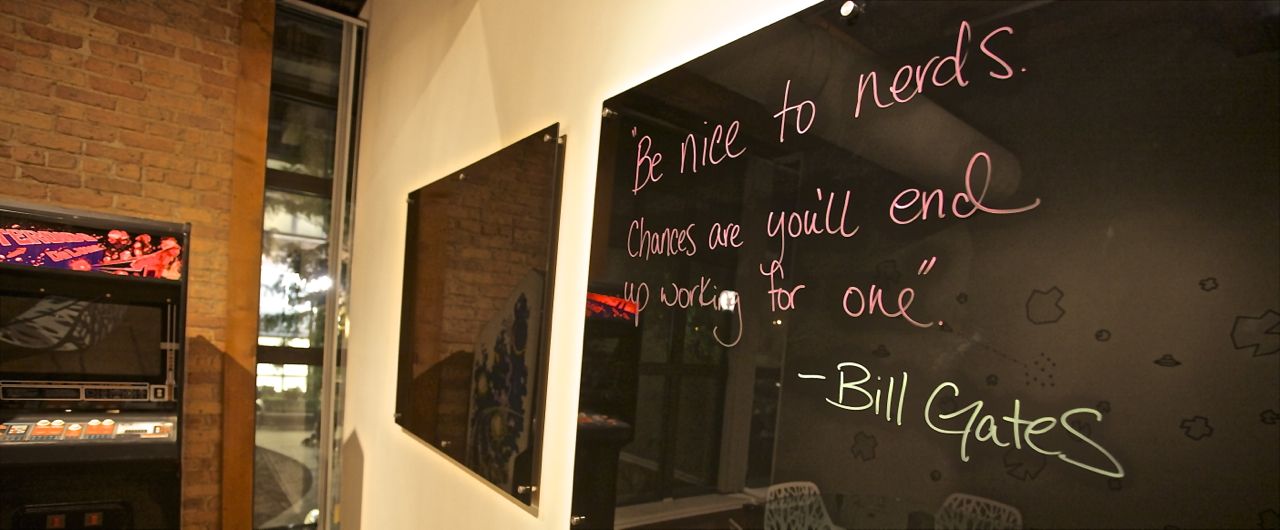 "Be nice to nerds.
Chances are you'll end
up working for one".
-Bill Gates